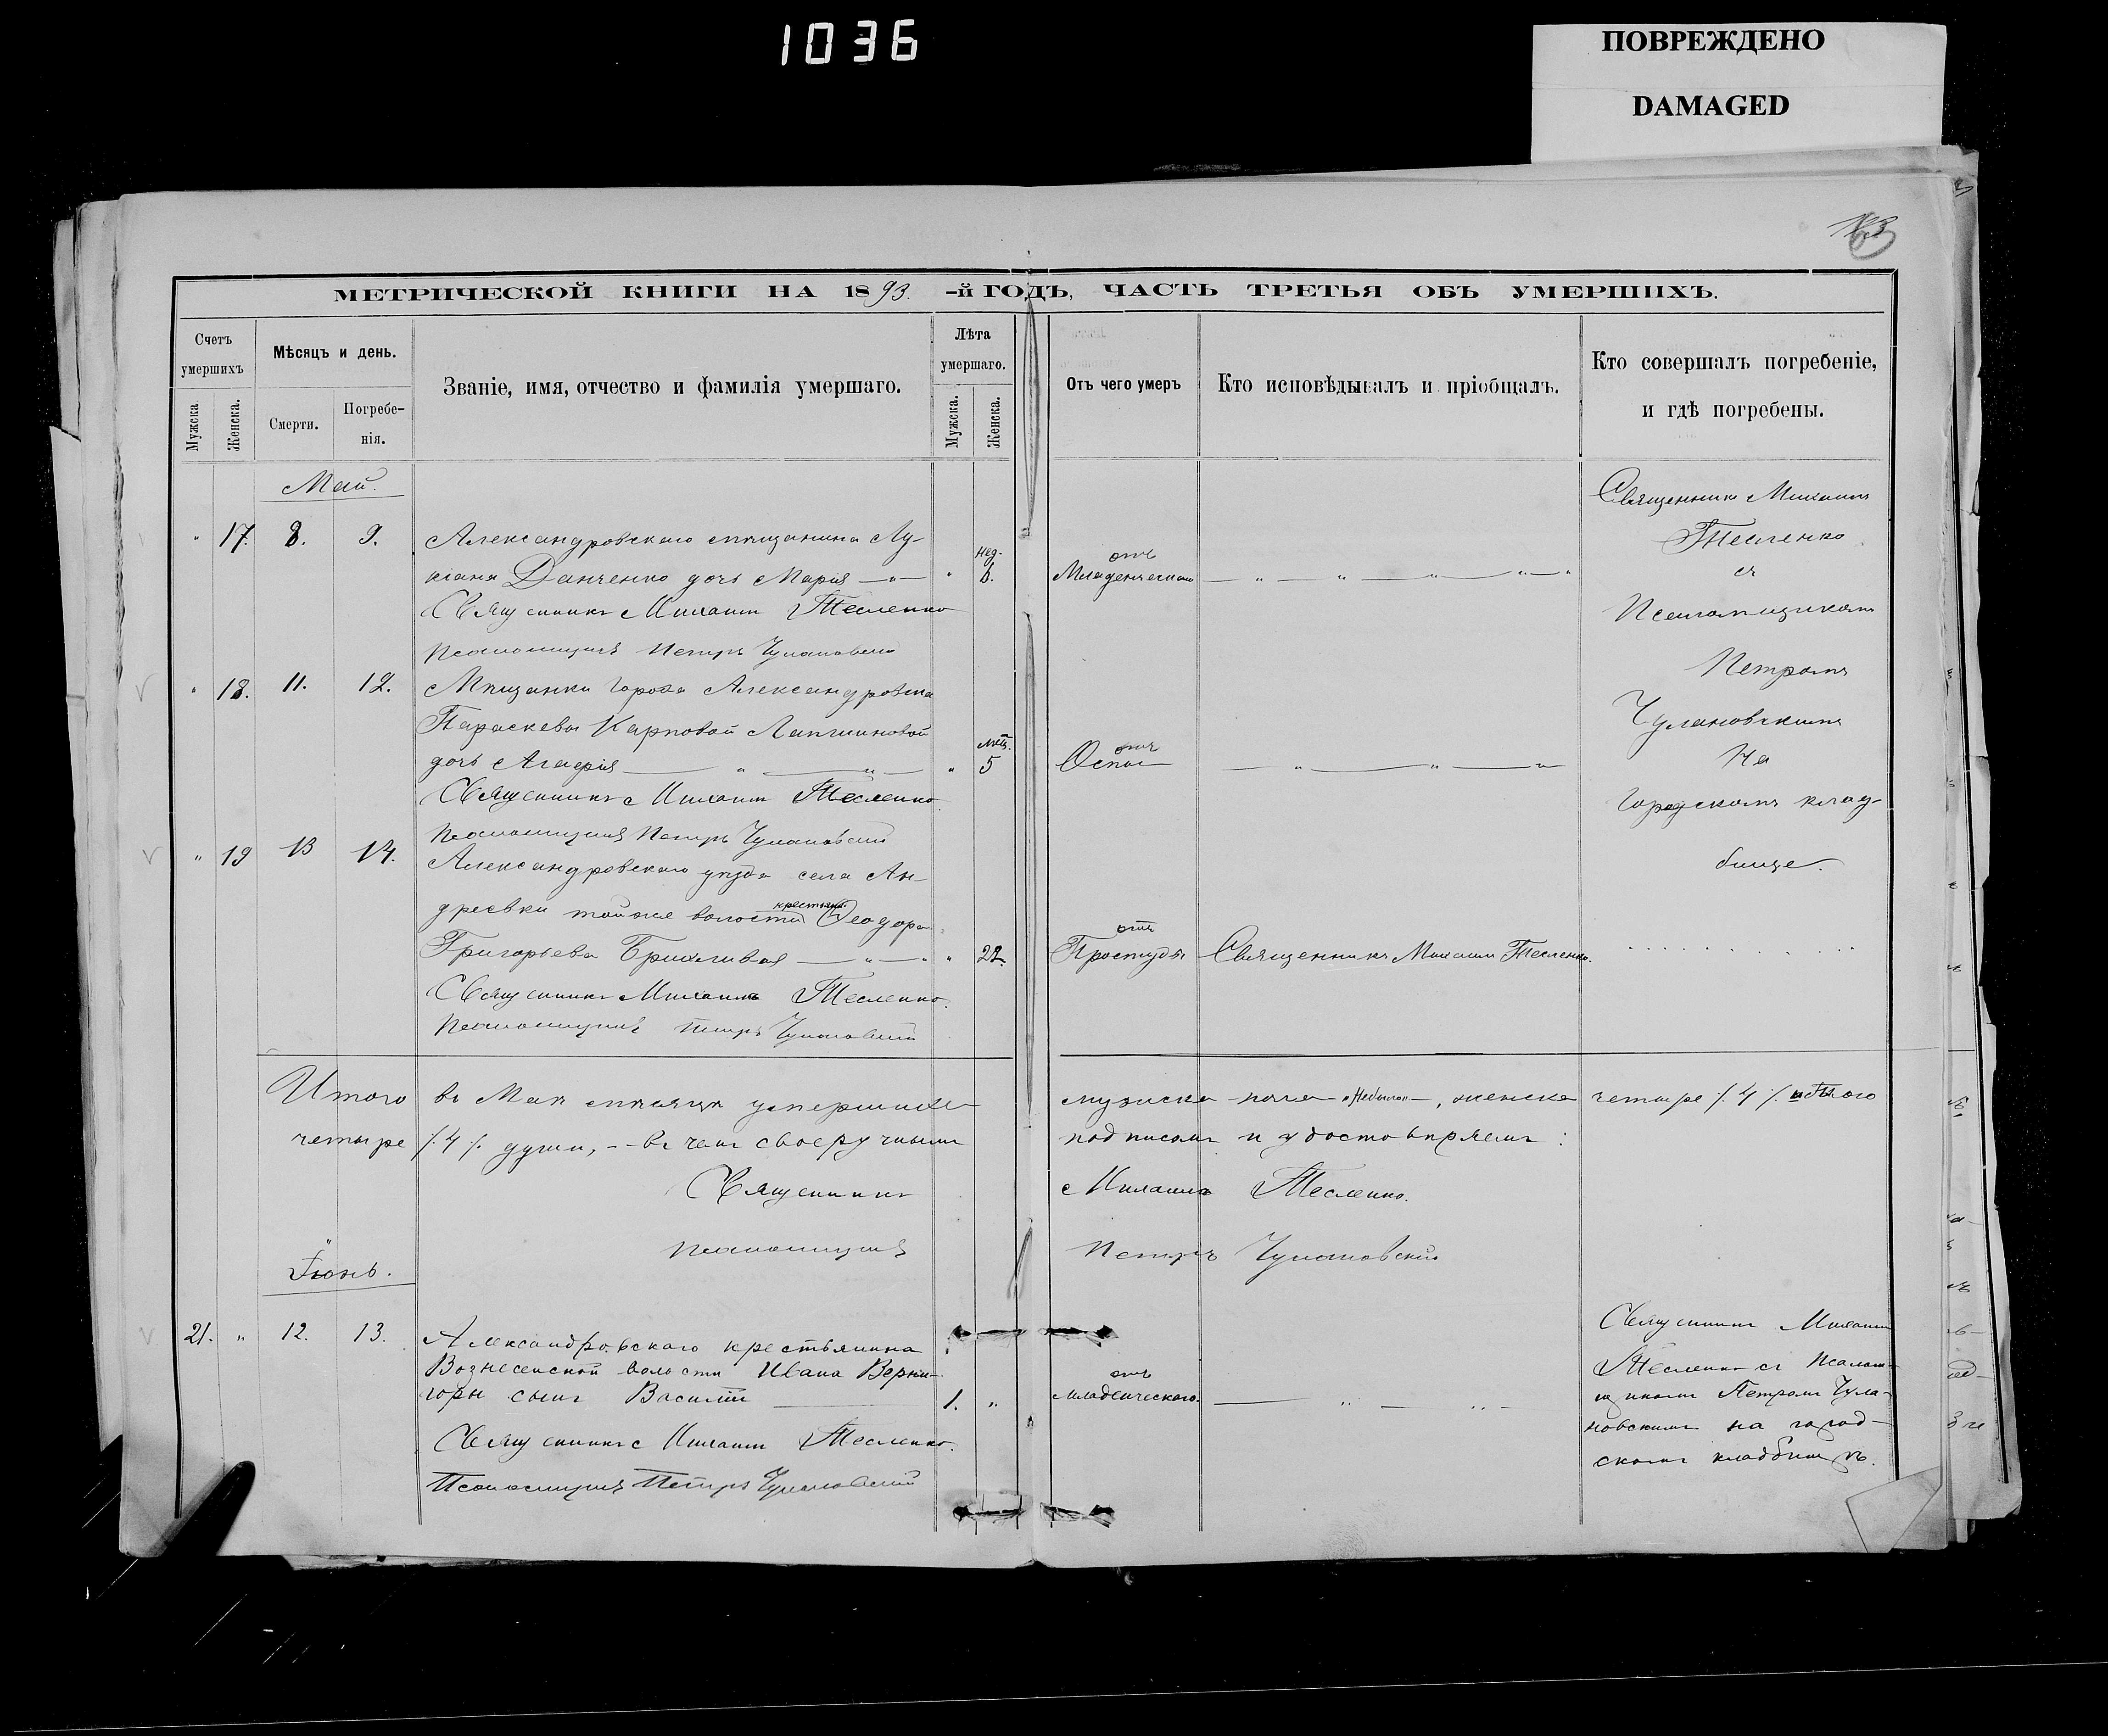 1036
ПОВРЕЖДЕНО
DAMAGED
МЕТРИЧЕСКОЙ КНИГИ НА 1893.-й ГОДЪ, ЧАСТЬ ТРЕТЬЯ ОБЪ УМЕРШИХЪ.
Счетъ умершихъ
Мужска.
Женска.
Мѣсяцъ и день.
Смерти.
Погребе-
нія.
Званіе, имя, отчество и фамилія умершаго.
Лѣта
умершаго.
Мужска.
Женска.
Отъ чего умеръ
Кто исповѣдывалъ и пріобщалъ.
Кто совершалъ погребеніе,
и гдѣ погребены.
Май.
" 17. 8. 9.
Александровскаго мѣщанина Лу-
кіана Данченко дочь Марія — " —
" нед. 6.
отъ
Младенческаго
Священникъ Михаилъ Тесленко
Псаломщикъ Петръ Чулановскій
Священникъ Михаилъ
Тесленко
съ
Псаломщикомъ
Петромъ
Чулановскимъ
На
Городскомъ клад-
бище.
" 18. 11. 12.
Мѣщанки города Александровска
Параскевы Карповой Лапшиновой
дочь Агафія
" мѣс. 5
отъ
Оспы
Священникъ Михаилъ Тесленко.
Псаломщикъ Петръ Чулановскій
" 19 13 14.
Александровскаго уѣзда села Ан-
дреевки тойже волости крестьян. Ѳеодора
Григорьева
" 22.
отъ
Простуды
Священникъ Михаилъ Тесленко.
Священникъ Михаилъ Тесленко.
Псаломщикъ Петръ Чулановскій
Итого въ Маѣ мѣсяцѣ умершихъ мужска пола "небыло", женска четыре /.4/. итого
четыре /.4/. души, -- въ чемъ своеручнымъ подписомъ и удостовѣряемъ:
Священникъ Михаилъ Тесленко.
Псаломщикъ Петръ Чулановскій
Іюнь.
21. " 12. 13.
Александровскаго крестьянина
Вознесенской волости Ивана Верни-
горы сынъ Василій
1. "
отъ
младенческаго.
Священникъ Михаилъ Тесленко.
Псаломщикъ Петръ Чулановскій
Священникъ Михаилъ
Тесленко съ Псалом-
щикомъ Петромъ Чула-
новскимъ на город-
скомъ кладбищѣ.